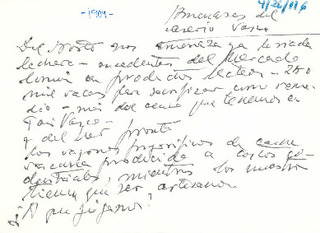 -1984-
4/26/016
Amenazas del
caserío Vasco
Del Norte nos amenaza la riada
lechera - excedentes del Mercado
Común en productos lácteos - 280
mil vacas para sacrificar como reme-
dio - más del censo que tenemos en
País Vasco -
y del Sur pronto
los vagones frigoríficos de carne
vacuna producida a costos
industriales, mientras los nuestros
tienen que ser artesanos
¿A qué jugamos?